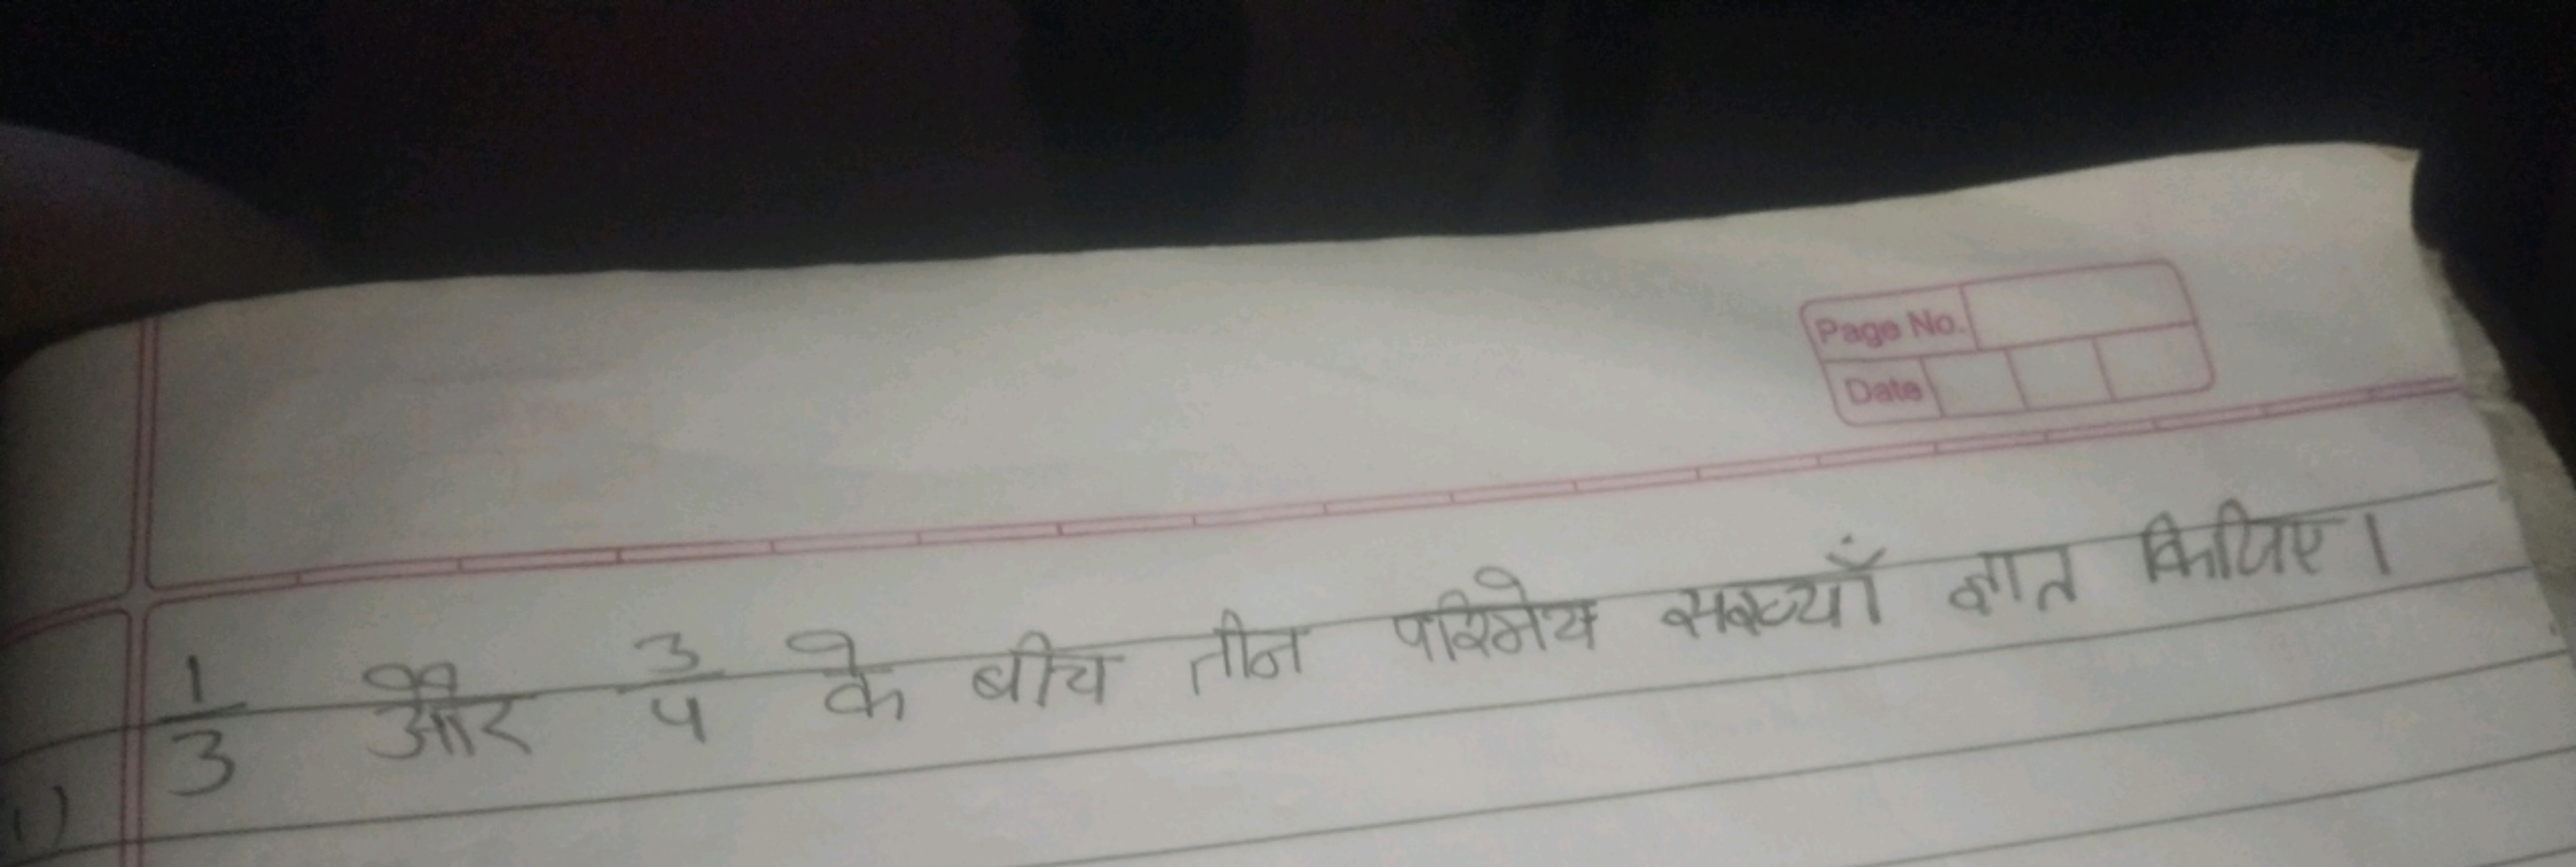 Page No.
Date
1) 1/3 और 3/4 के बीच तीन परिमेय संख्याँ ज्ञात किजिए।